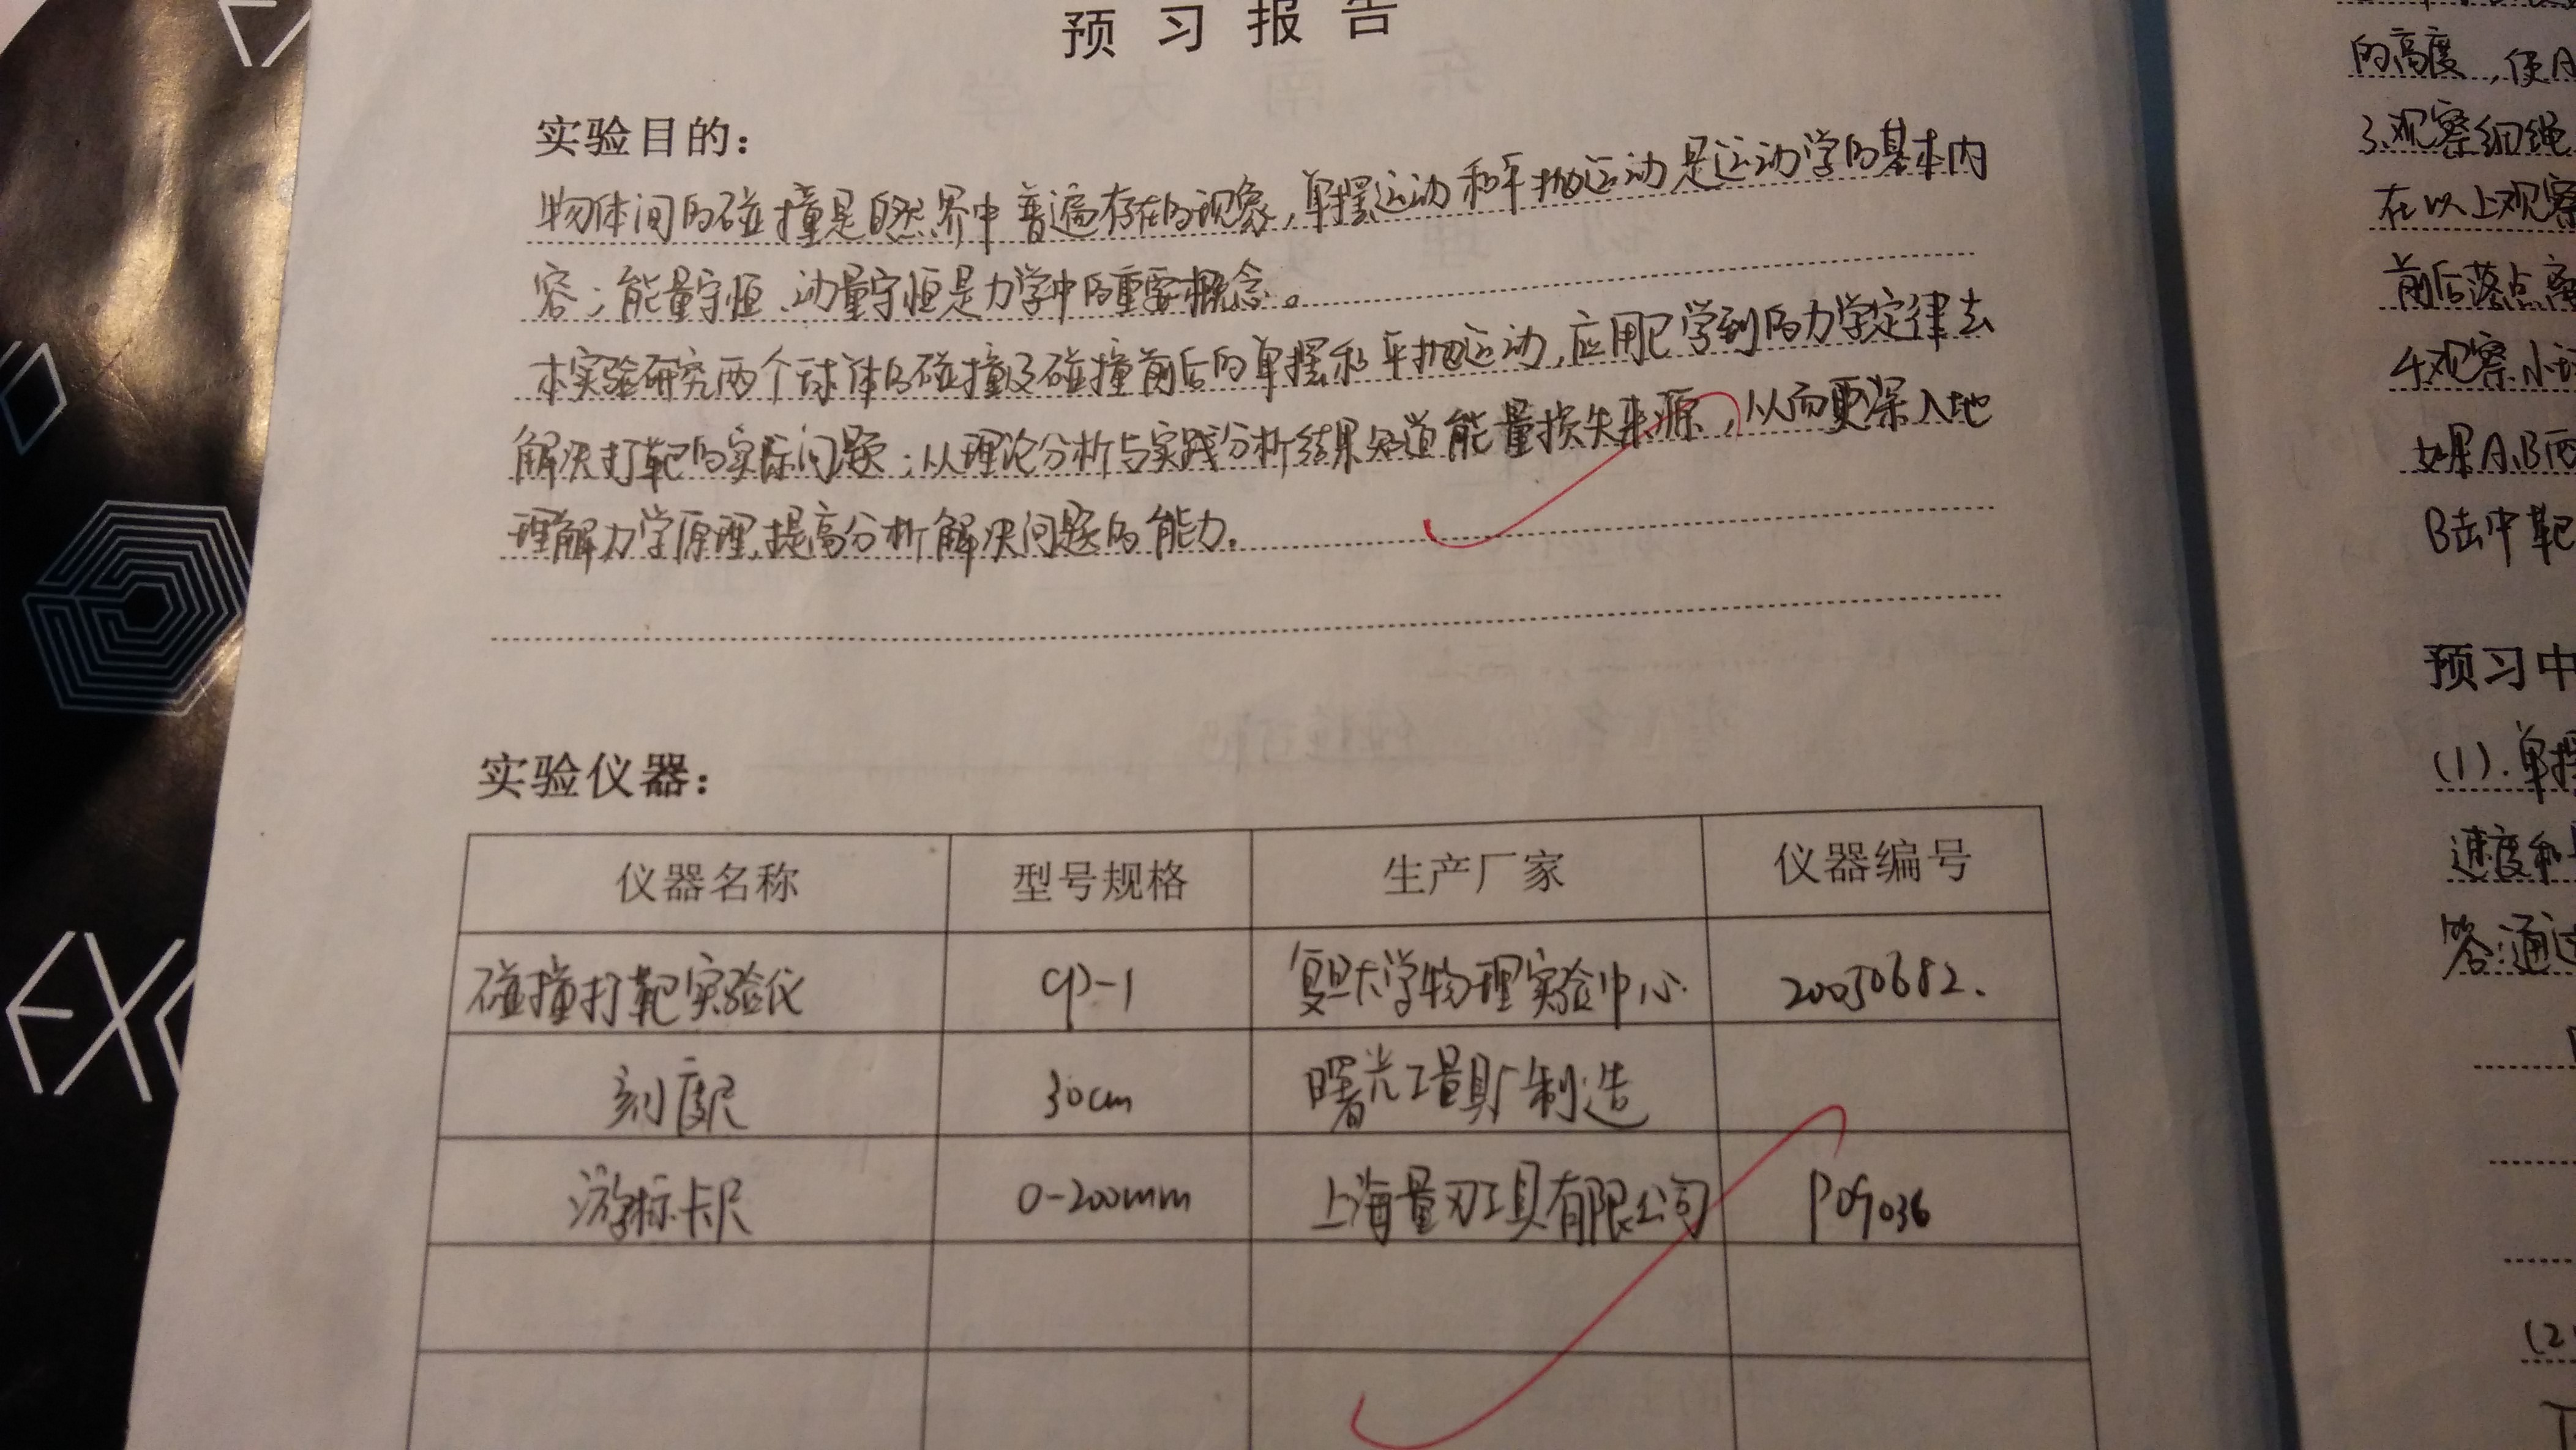 预习报告
实验目的：
物体间的碰撞是自然界中普遍存在的现象，单摆运动和平抛运动是运动学的基本内
容；能量守恒、动量守恒是力学中的重要概念。
本实验研究两个球体的碰撞及碰撞前后的单摆和平抛运动，应用已学到的力学定律去
解决打靶的实际问题；从理论分析与实践分析结果知道能量损失来源，从而更深入地
理解力学原理，提高分析解决问题的能力。
实验仪器：
仪器名称 型号规格 生产厂家 仪器编号
碰撞打靶实验仪 CP-1 复旦大学物理实验中心. 20050682.
刻度尺 30cm 曙光工量具厂制造
游标卡尺 0-200mm 上海量刃工具有限公司 P09036
的高度，使A
3.观察细绳
在以上观察
前后落点高
4.观察小球
如果A、B两
B击中靶
预习中
(1).单摆
速度和
答：通过
(2)
EXO